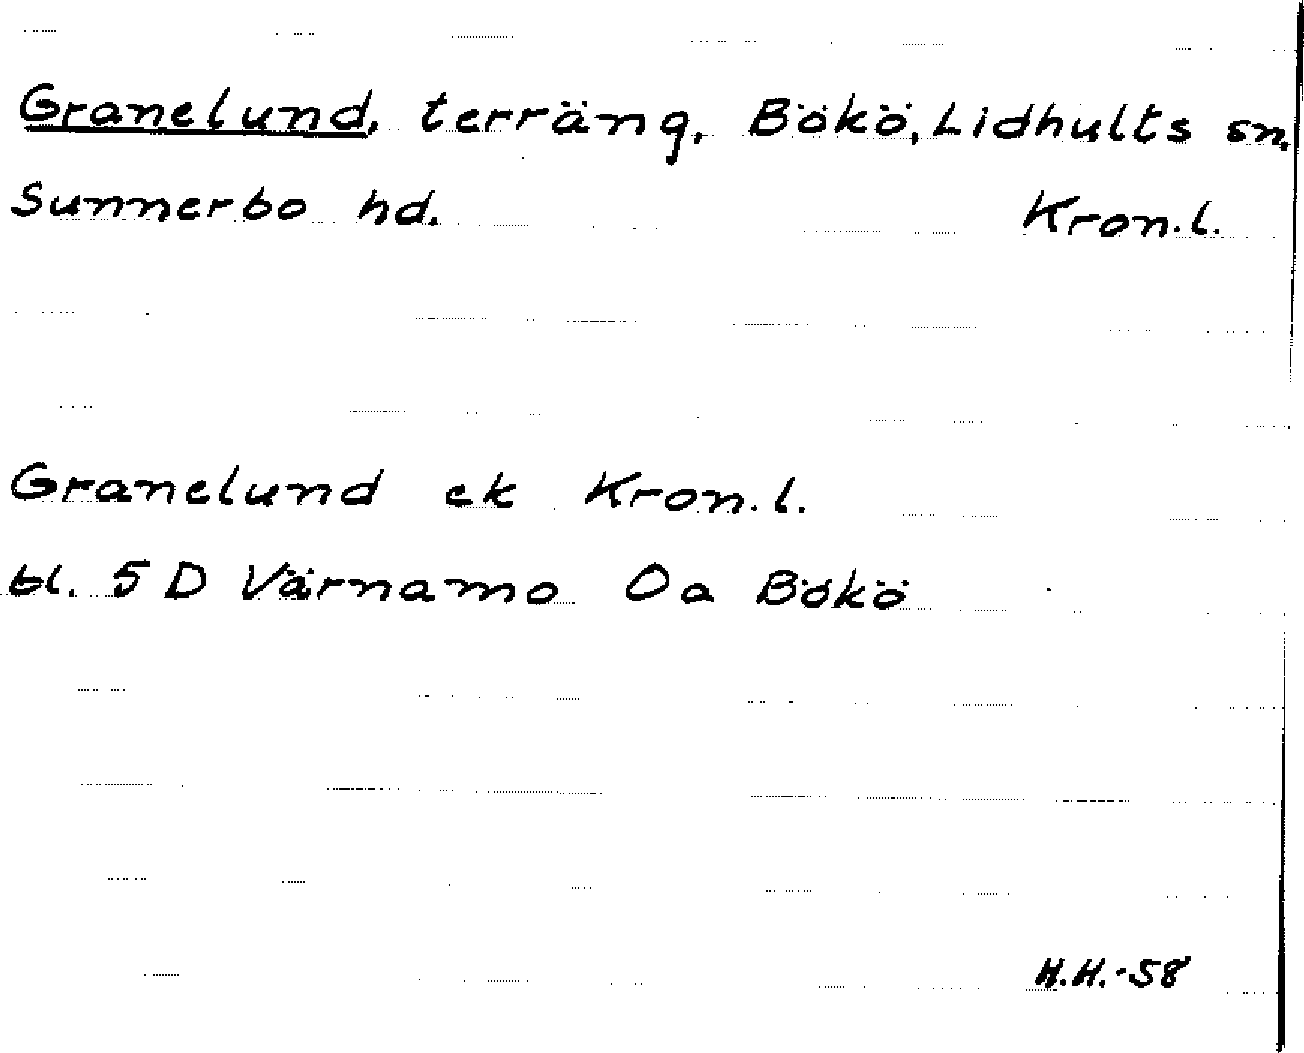 Granelund, terräng, Bökö, Lidhults sn.
Sunnerbo hd. Kron.l.
Granelund ek Kron.l.
bl. 5 D Värnamo Oa Bökö
H.H.-58